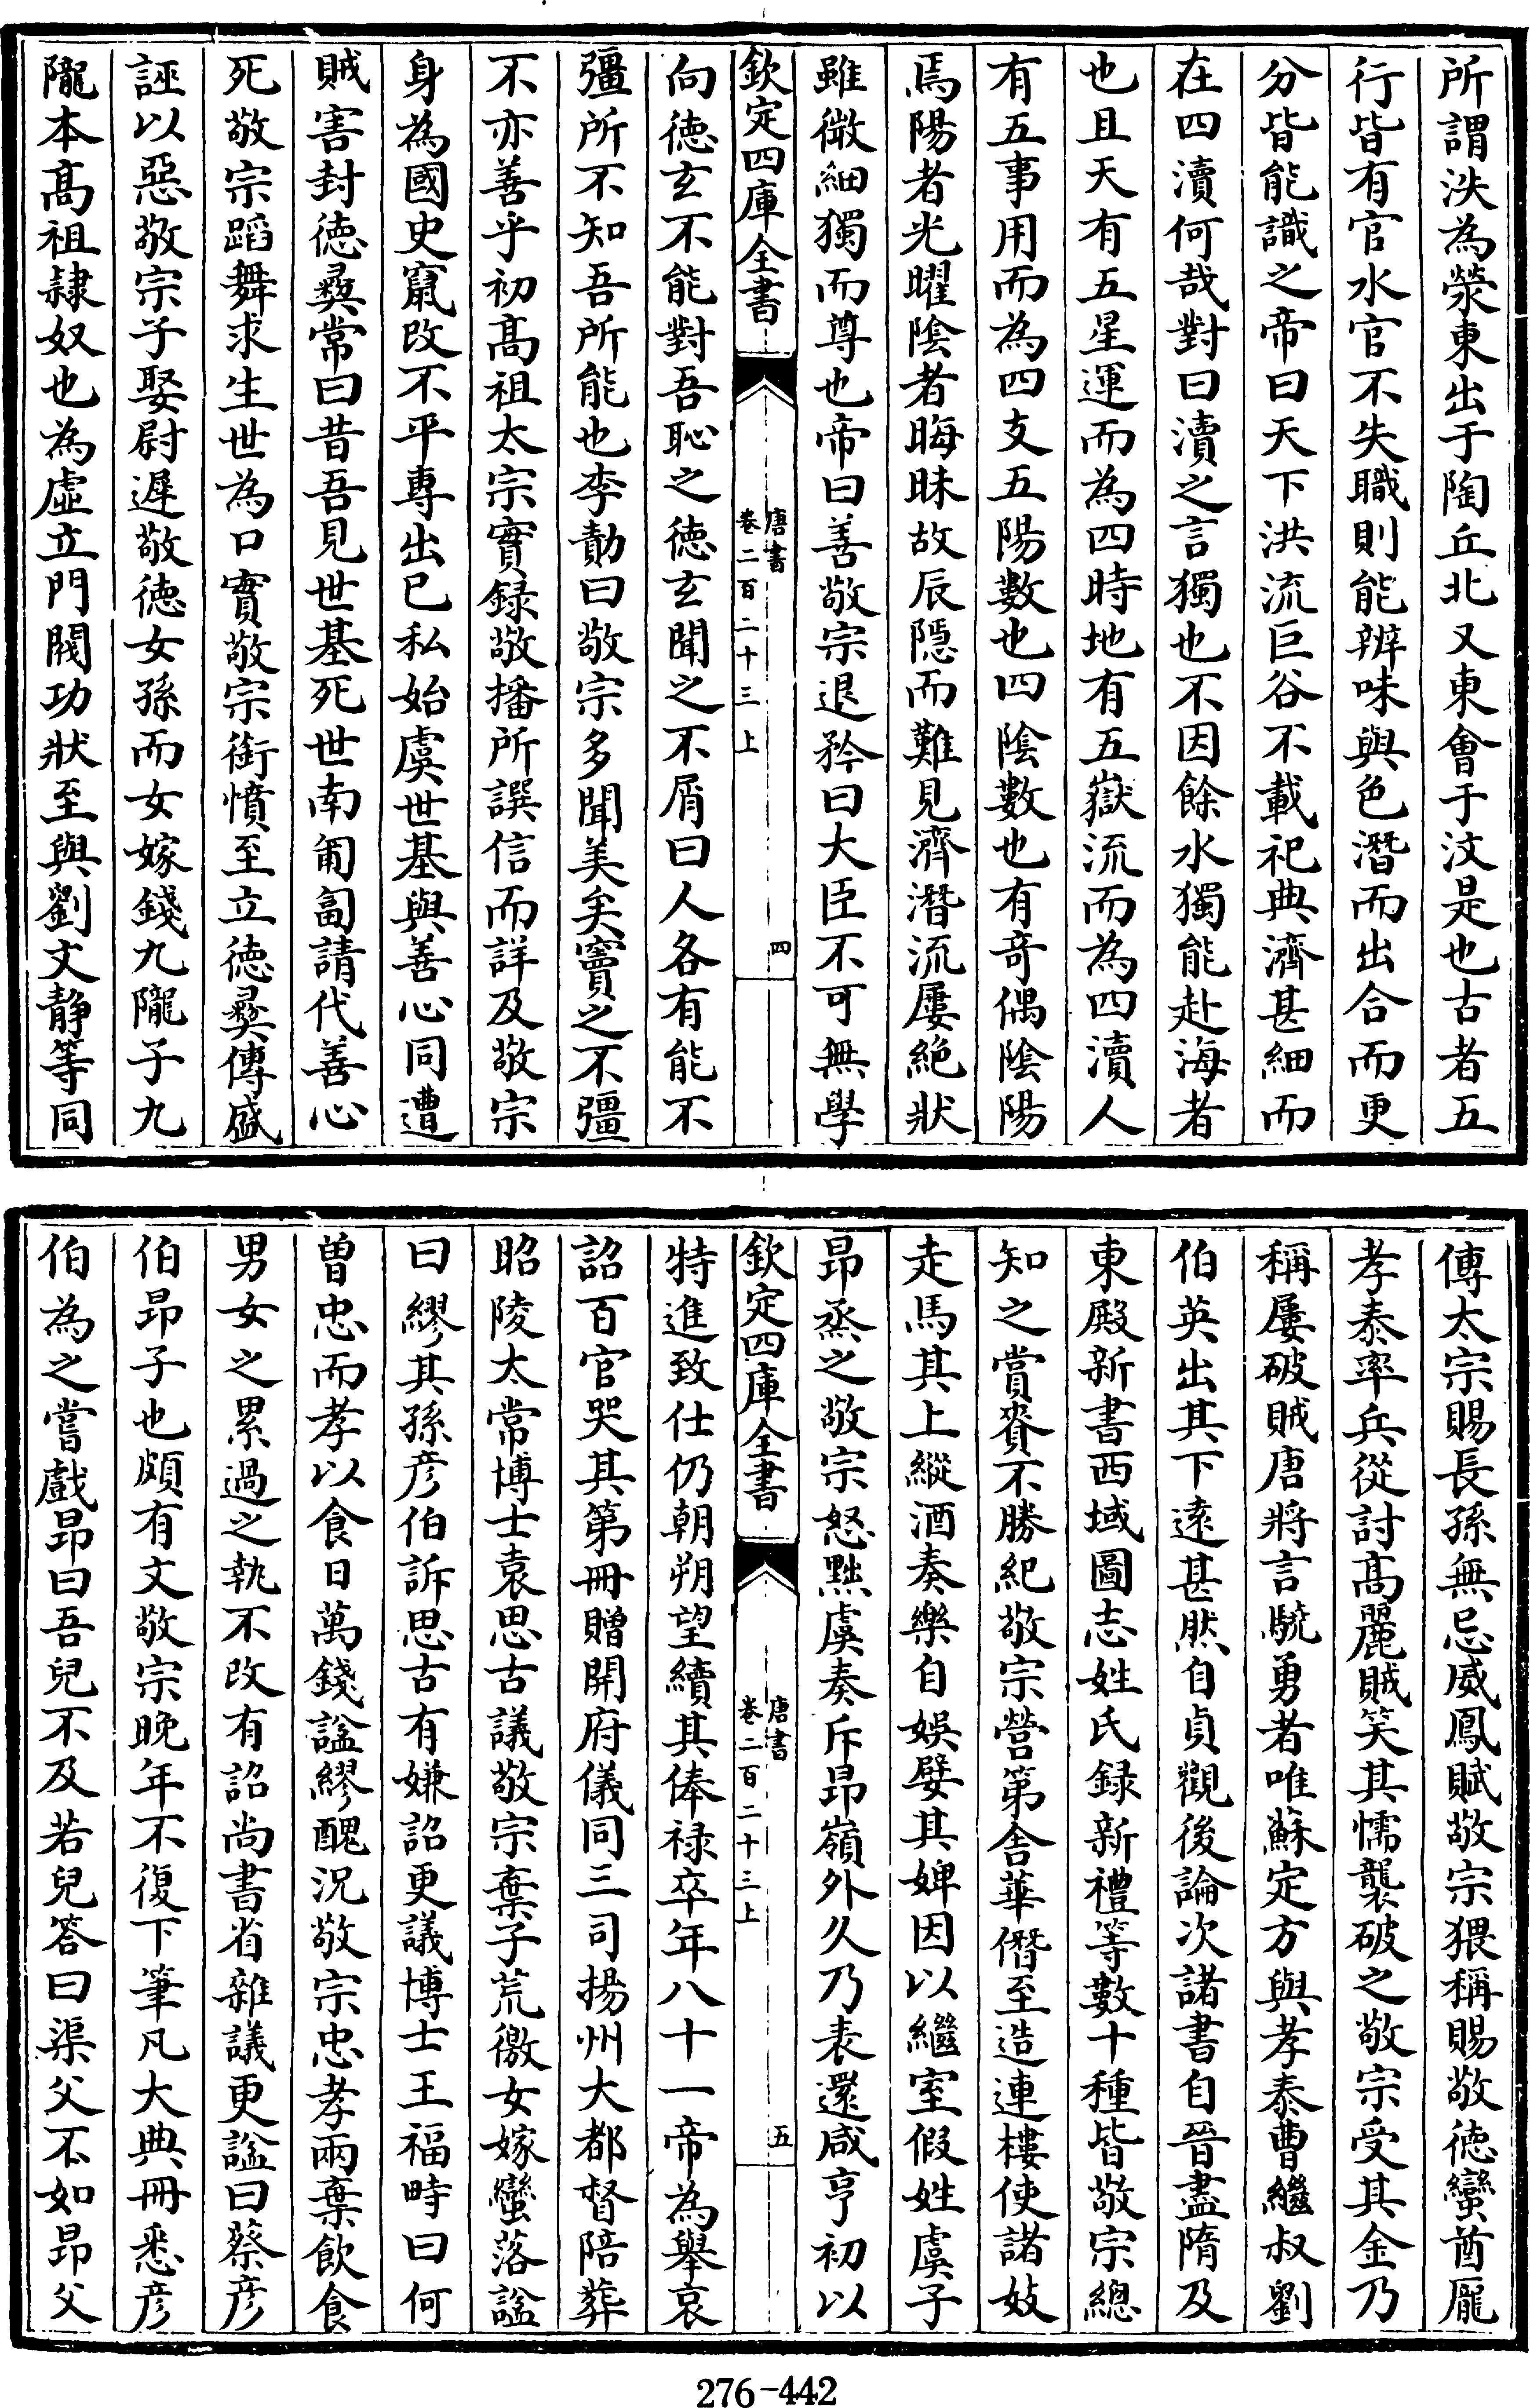 所謂泆為滎東出于陶丘北又東會于汶是也古者五
行皆有官水官不失職則能辨味與色潛而出合而更
分皆能識之帝曰天下洪流巨谷不載祀典濟甚細而
在四瀆何哉對曰瀆之言獨也不因餘水獨能赴海者
也且天有五星運而為四時地有五嶽流而為四瀆人
有五事用而為四支五陽數也四陰數也有奇偶陰陽
焉陽者光曜陰者晦昧故辰隱而難見濟潛流屢絶狀
雖微細獨而尊也帝曰善敬宗退矜曰大臣不可無學
欽定四庫全書
唐書
卷二百二十三上
四
向徳玄不能對吾恥之徳玄聞之不屑曰人各有能不
彊所不知吾所能也李勣曰敬宗多聞美矣竇之不彊
不亦善乎初髙祖太宗實録敬播所譔信而詳及敬宗
身為國史竄改不平專出已私始虞世基與善心同遭
賊害封徳彞常曰昔吾見世基死世南匍匐請代善心
死敬宗蹈舞求生世為口實敬宗銜憤至立徳彞傳盛
誣以惡敬宗子娶尉遲敬徳女孫而女嫁錢九隴子九
隴本髙祖隷奴也為虛立門閥功狀至與劉文靜等同
傳太宗賜長孫無忌威鳳賦敬宗猥稱賜敬徳蠻酋龎
孝泰率兵從討髙麗賊笑其懦襲破之敬宗受其金乃
稱屢破賊唐將言驍勇者唯蘇定方與孝泰曹繼叔劉
伯英出其下遠甚然自貞觀後論次諸書自晉盡隋及
東殿新書西域圖志姓氏録新禮等數十種皆敬宗總
知之賞賚不勝紀敬宗營第舍華僭至造連樓使諸妓
走馬其上縱酒奏樂自娛嬖其婢因以繼室假姓虞子
昂烝之敬宗怒黜虞奏斥昂嶺外久乃表還咸亨初以
欽定四庫全書
唐書
卷二百二十三上
五
特進致仕仍朝朔望續其俸禄卒年八十一帝為舉哀
詔百官哭其第冊贈開府儀同三司揚州大都督陪葬
昭陵太常博士袁思古議敬宗棄子荒徼女嫁蠻落諡
曰繆其孫彦伯訴思古有嫌詔更議博士王福畤曰何
曽忠而孝以食日萬錢諡繆醜況敬宗忠孝兩棄飲食
男女之累過之執不改有詔尚書省雜議更諡曰恭彦
伯昂子也頗有文敬宗晚年不復下筆凡大典冊悉彦
伯為之嘗戲昂曰吾兒不及若兒答曰渠父不如昂父
276-442